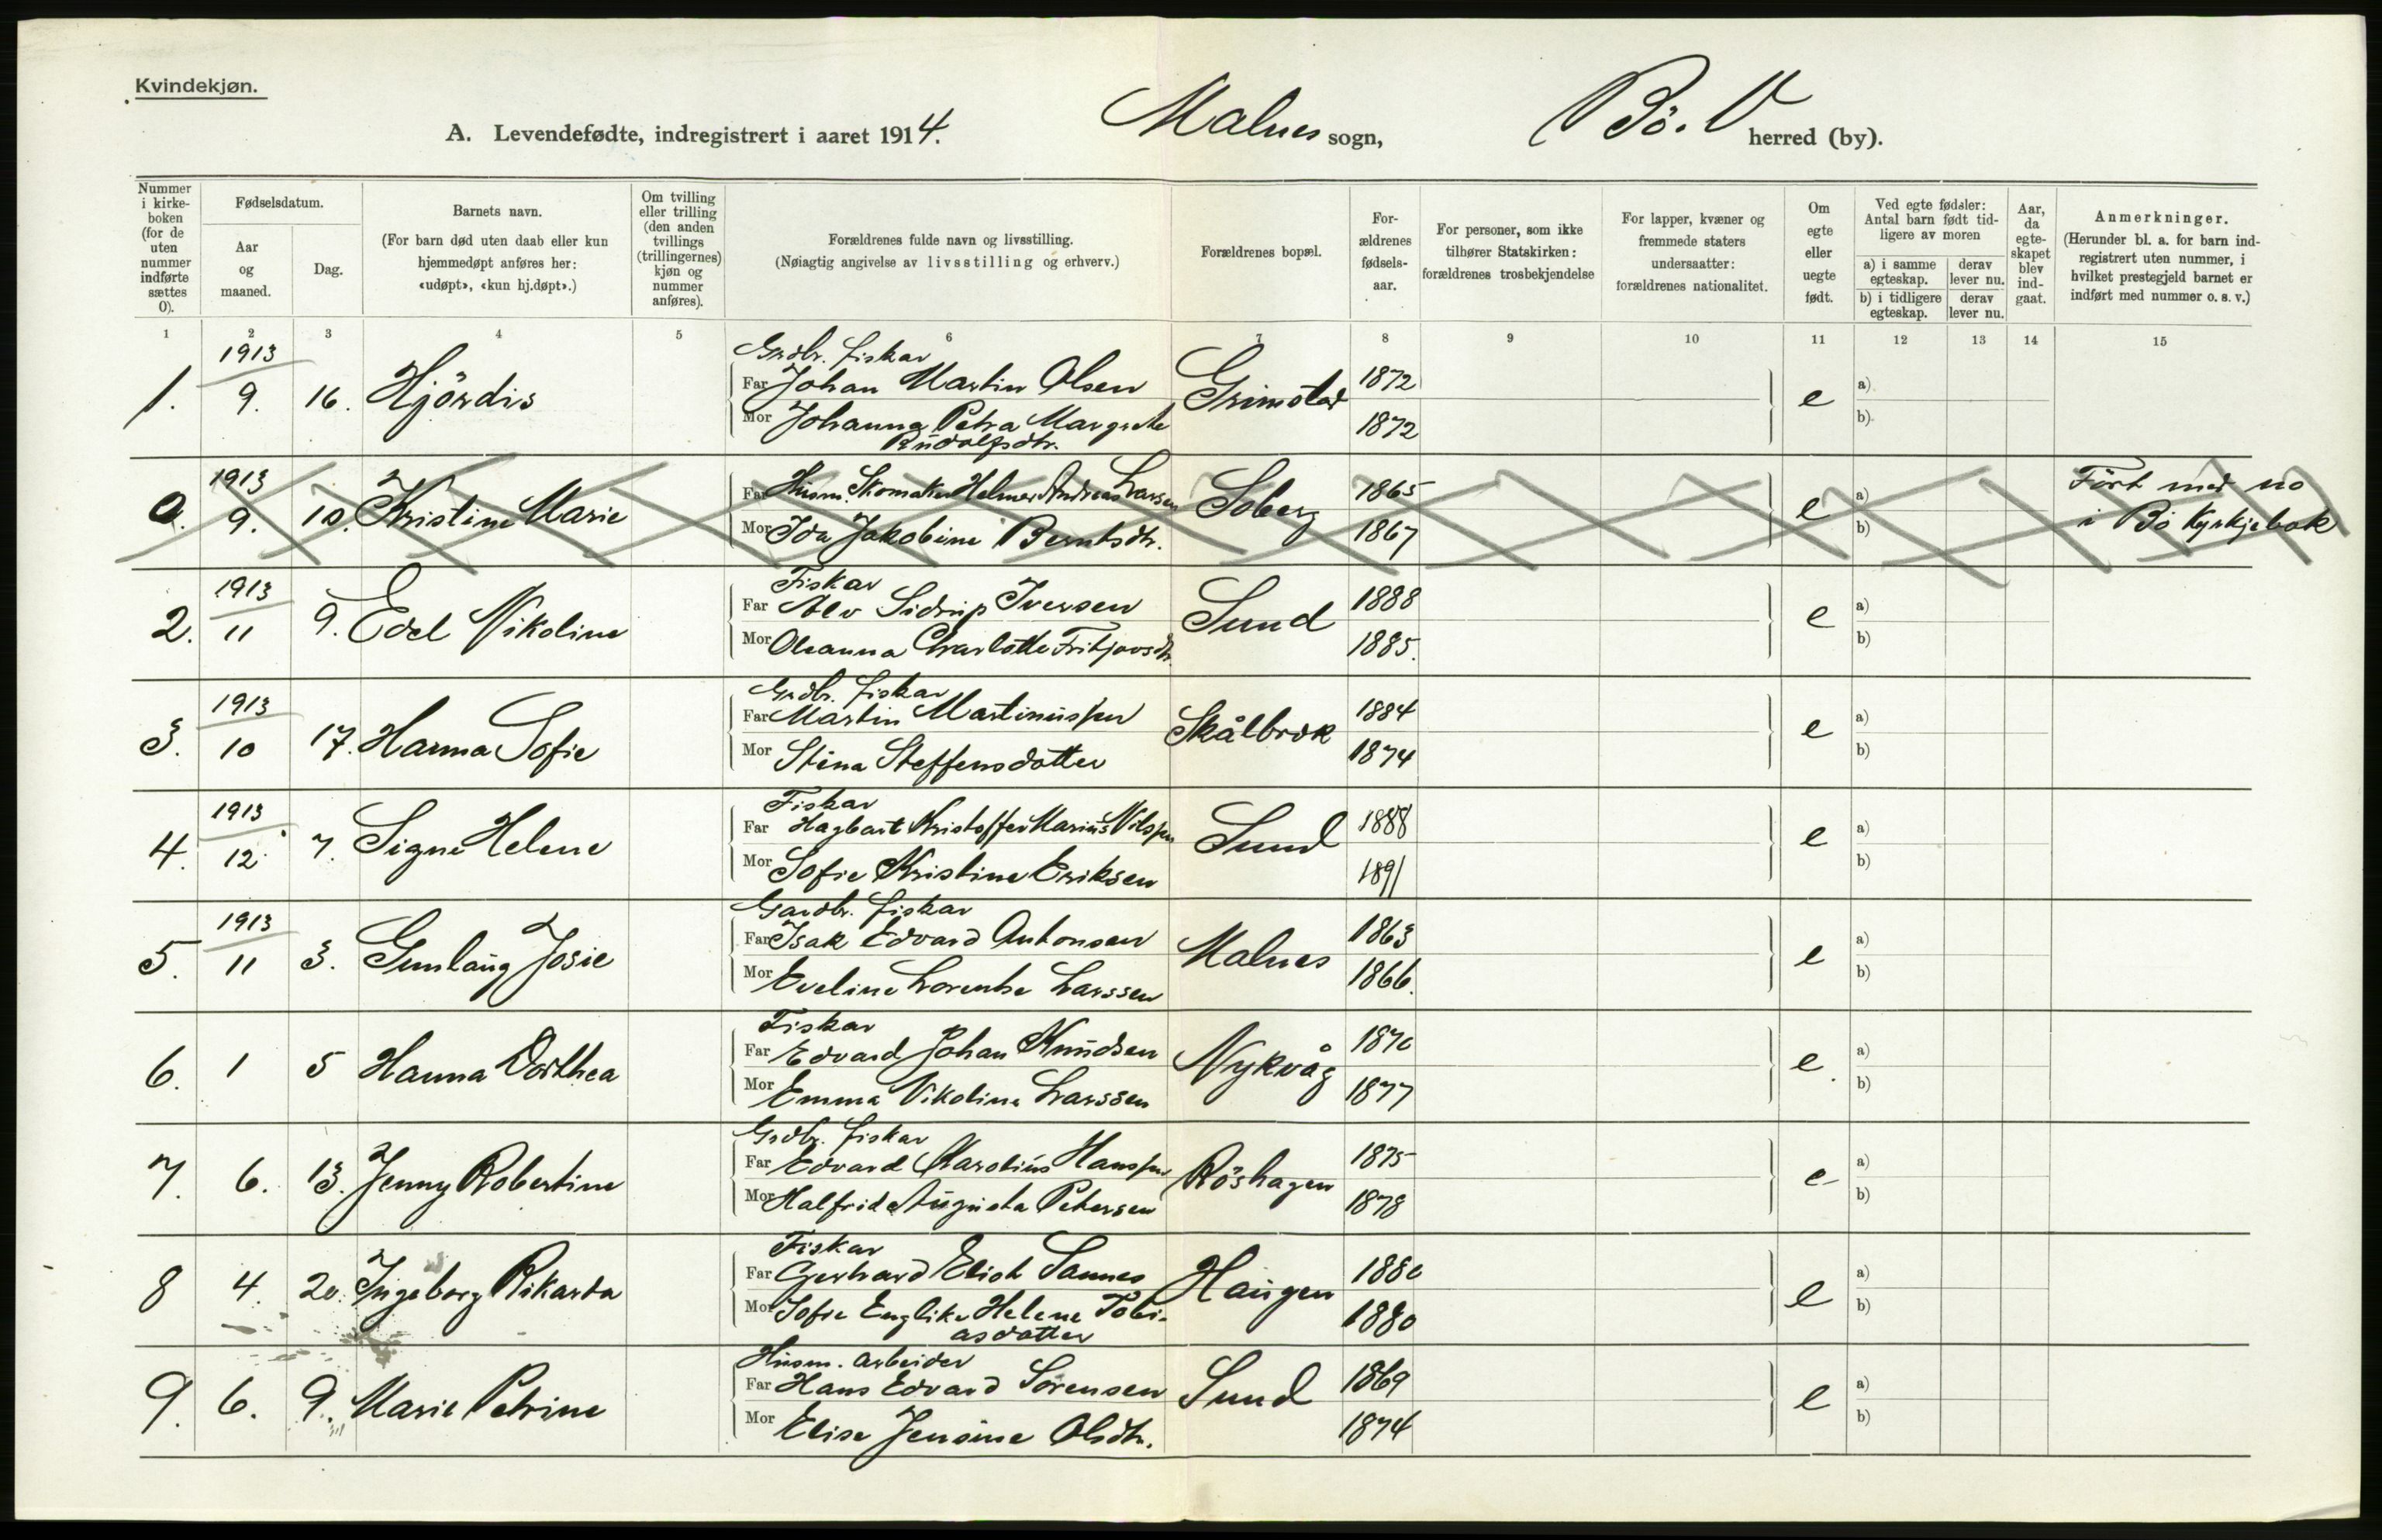 Kvindekjøn.
A. Levendefødte, indregistrert i aaret 1914. Malnes sogn, Bö. V herred (by).
Nummer i kirke-boken (for de uten nummer indførte sættes 0).
Fødselsdatum.
Aar og maaned.
Dag.
Barnets navn.
(For barn død uten daab eller kun hjemmedøpt anføres her: «udøpt», «kun hj.døpt».)
Om tvilling eller trilling (den anden tvillings (trillingernes) kjøn og nummer anføres).
Forældrenes fulde navn og livsstilling.
(Nøiagtig angivelse av livsstilling og erhverv.)
Forældrenes bopæl.
For-ældrenes fødsels-aar.
For personer, som ikke tilhører Statskirken: forældrenes trosbekjendelse
For lapper, kvæner og fremmede staters undersaatter: forældrenes nationalitet.
Om egte eller uegte født.
Ved egte fødsler: Antal barn født tid-ligere av moren
a) i samme egteskap.
derav lever nu.
b) i tidligere egteskap.
derav lever nu.
Aar, da egte-skapet blev ind-gaat.
Anmerkninger.
(Herunder bl. a. for barn ind-registrert uten nummer, i hvilket prestegjeld barnet er indført med nummer o. s. v.)
1 2 3 4 5 6 7 8 9 10 11 12 13 14 15
1913 Grdbr. fiskar
1. 9. 16. Hjördis Far Johan Martin Olsen Grimstad 1872 e a)
Mor Johanna Petra Margrete 1872 b)
Rudolfsdtr.
1913 Far Husm. Skomaker Helmer Andreas Larsen 1865 a) Fört med no
0. 9. 10. Kristine Marie Soberg e
Mor Ida Jakobine Berntsdtr. 1867 b) i Bö Kyrkjebok
1913 Fiskar
2. 11 9. Edel Nikoline Far Alv Sidrup Iversen Sund 1888 e a)
Mor Oleanna Charlotte Fritjovsdtr. 1885. b)
1913 Grdbr. fiskar
3. 10 17. Hanna Sofie Far Martin Martinussen Skålbrok 1884 e a)
Mor Stina Steffensdatter 1874 b)
1913 Fiskar
4. 12. 7. Signe Helene Far Hagbart Kristoffer Marius Nilssen Sund 1888 e a)
Mor Sofie Kristine Eriksen 1891 b)
1913 Gardbr. fiskar
5. 11 3. Gunlaug Josie Far Isak Edvard Antonsen Malnes 1863 e a)
Mor Eveline Lorentse Larssen 1866. b)
Fiskar
6. 1 5 Hanna Dorthea Far Edvard Johan Knudsen Nykvåg 1870 e. a)
Mor Emma Nikoline Larssen 1877 b)
Grdbr. fiskar
7. 6. 13. Jenny Robertine Far Edvard Karolius Hanssen Röshagen 1875 e a)
Mor Halfrid Augusta Petersen 1878 b)
Fiskar
8 4. 20. Ingeborg Rikarda Far Gerhard Eliot Sannes Haugen 1880 e a)
Mor Sofie Englike Helene Tobi- 1880 b)
asdatter
Husm. arbeider
9. 6. 9. Marie Petrine Far Hans Edvard Sørensen Sund 1869 e a)
Mor Elise Jensine Olsdtr. 1874 b)